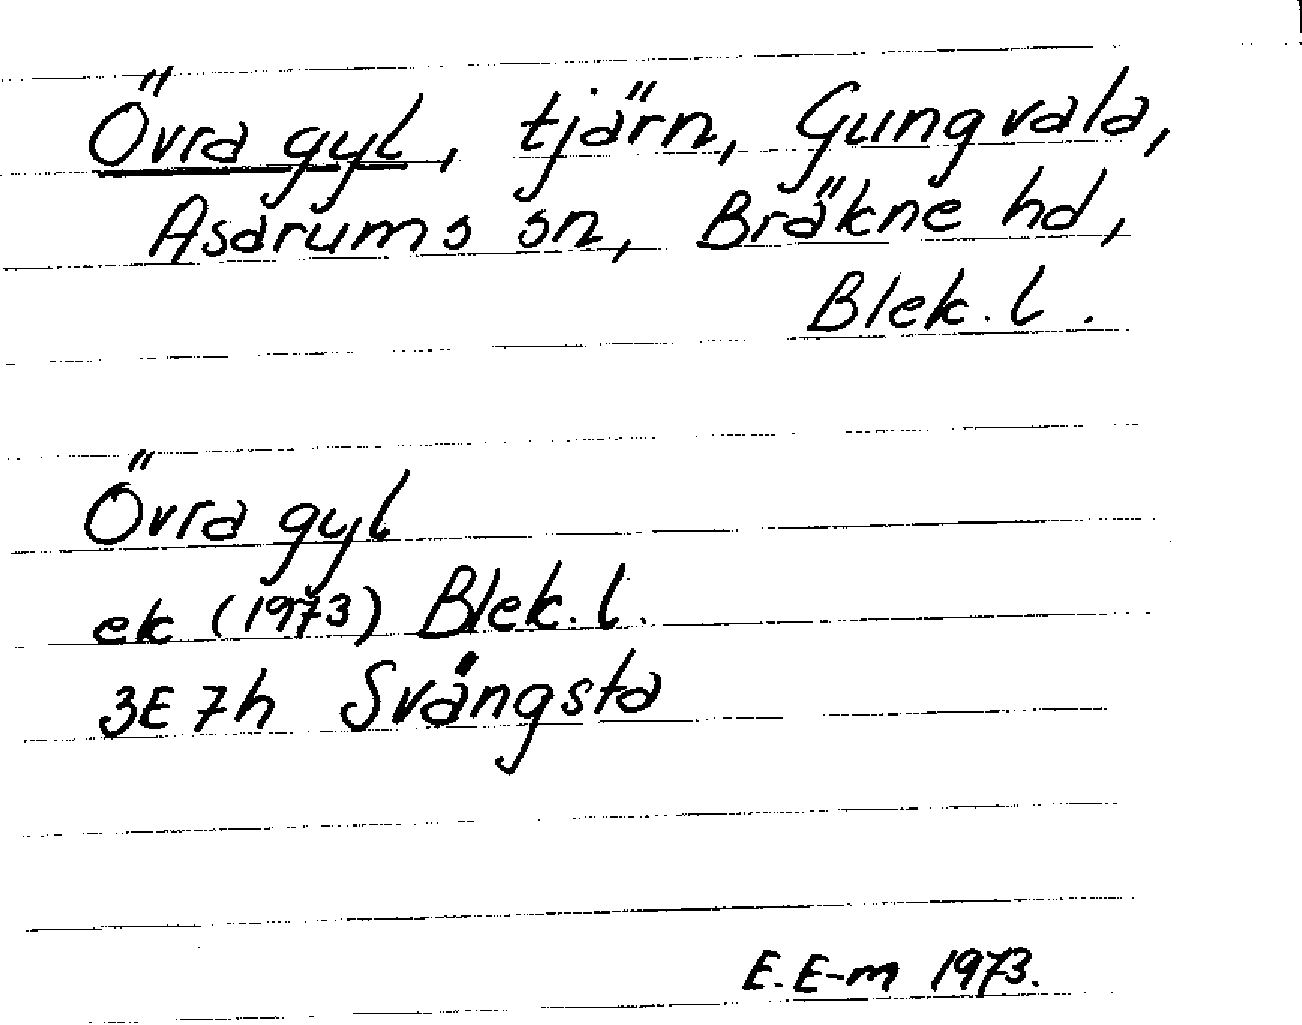 Övra gyl, tjärn, Gungvala,
Asarums sn, Bräkne hd,
Blek. l.
Övra gyl
ek (1973) Blek. l.
3E 7h Svängsta
E. E-m 1973.